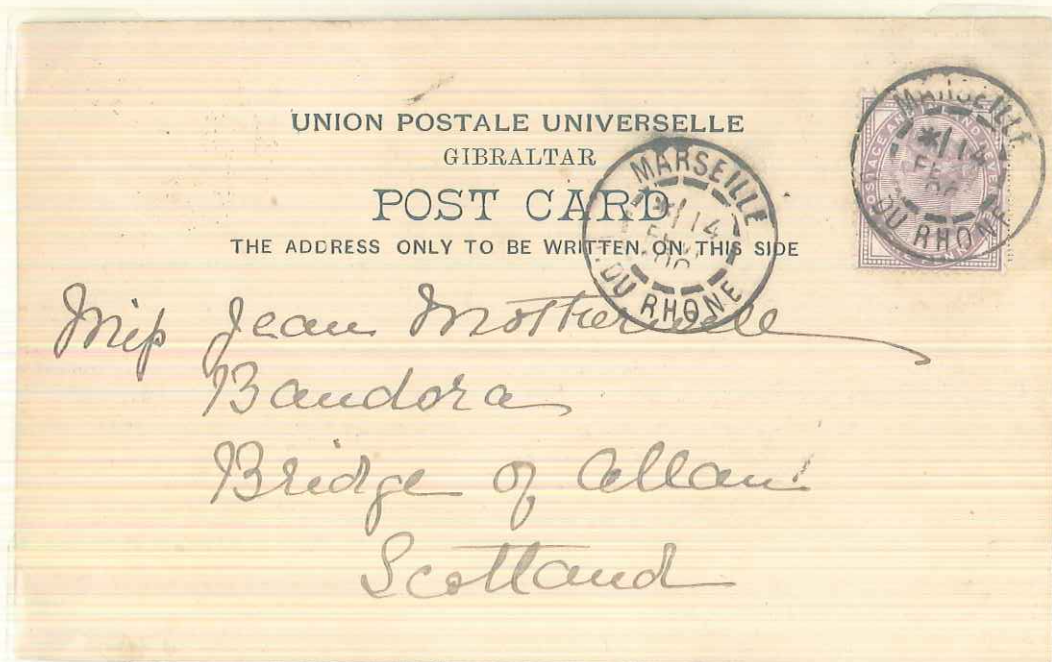 UNION POSTALE UNIVERSELLE
GIBRALTAR
POST CARD
THE ADDRESS ONLY TO BE WRITTEN ON THIS SIDE
MARSEILLE
14
FE
DU RHONE
MARSEILLE
14
FE
DU RHONE
Miss Jean Motherwell
Bandora
Bridge of Allan
Scotland